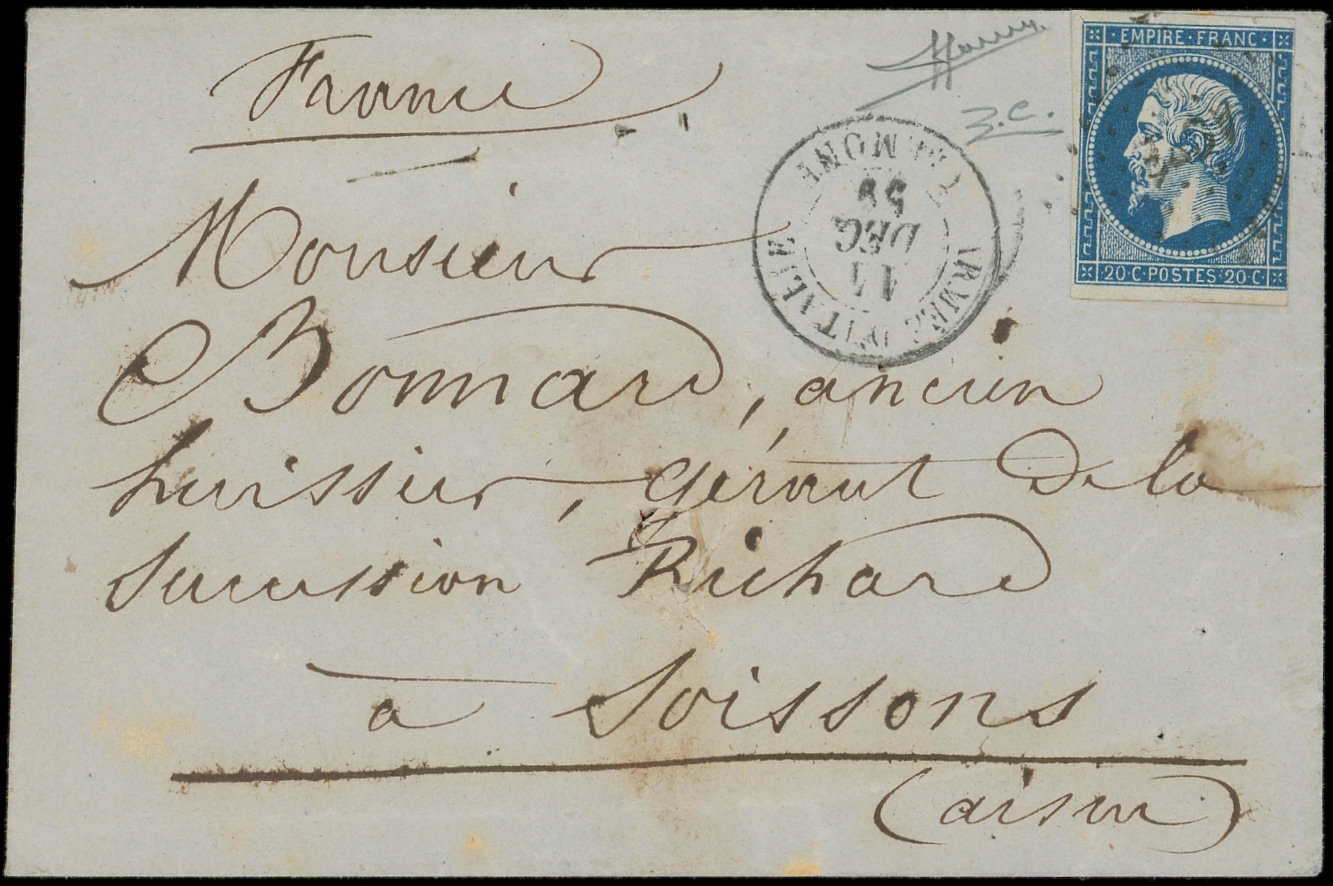 France
EMPIRE · FRANC ·
20 · C · POSTES · 20 · C ·
z.c.
ARMÉE D'ITALIE
CREMONE
11
DEC
59
Monsieur
Bonnard, ancien
huissier, gérant de la
succession Richard
à Soissons
(aisne)